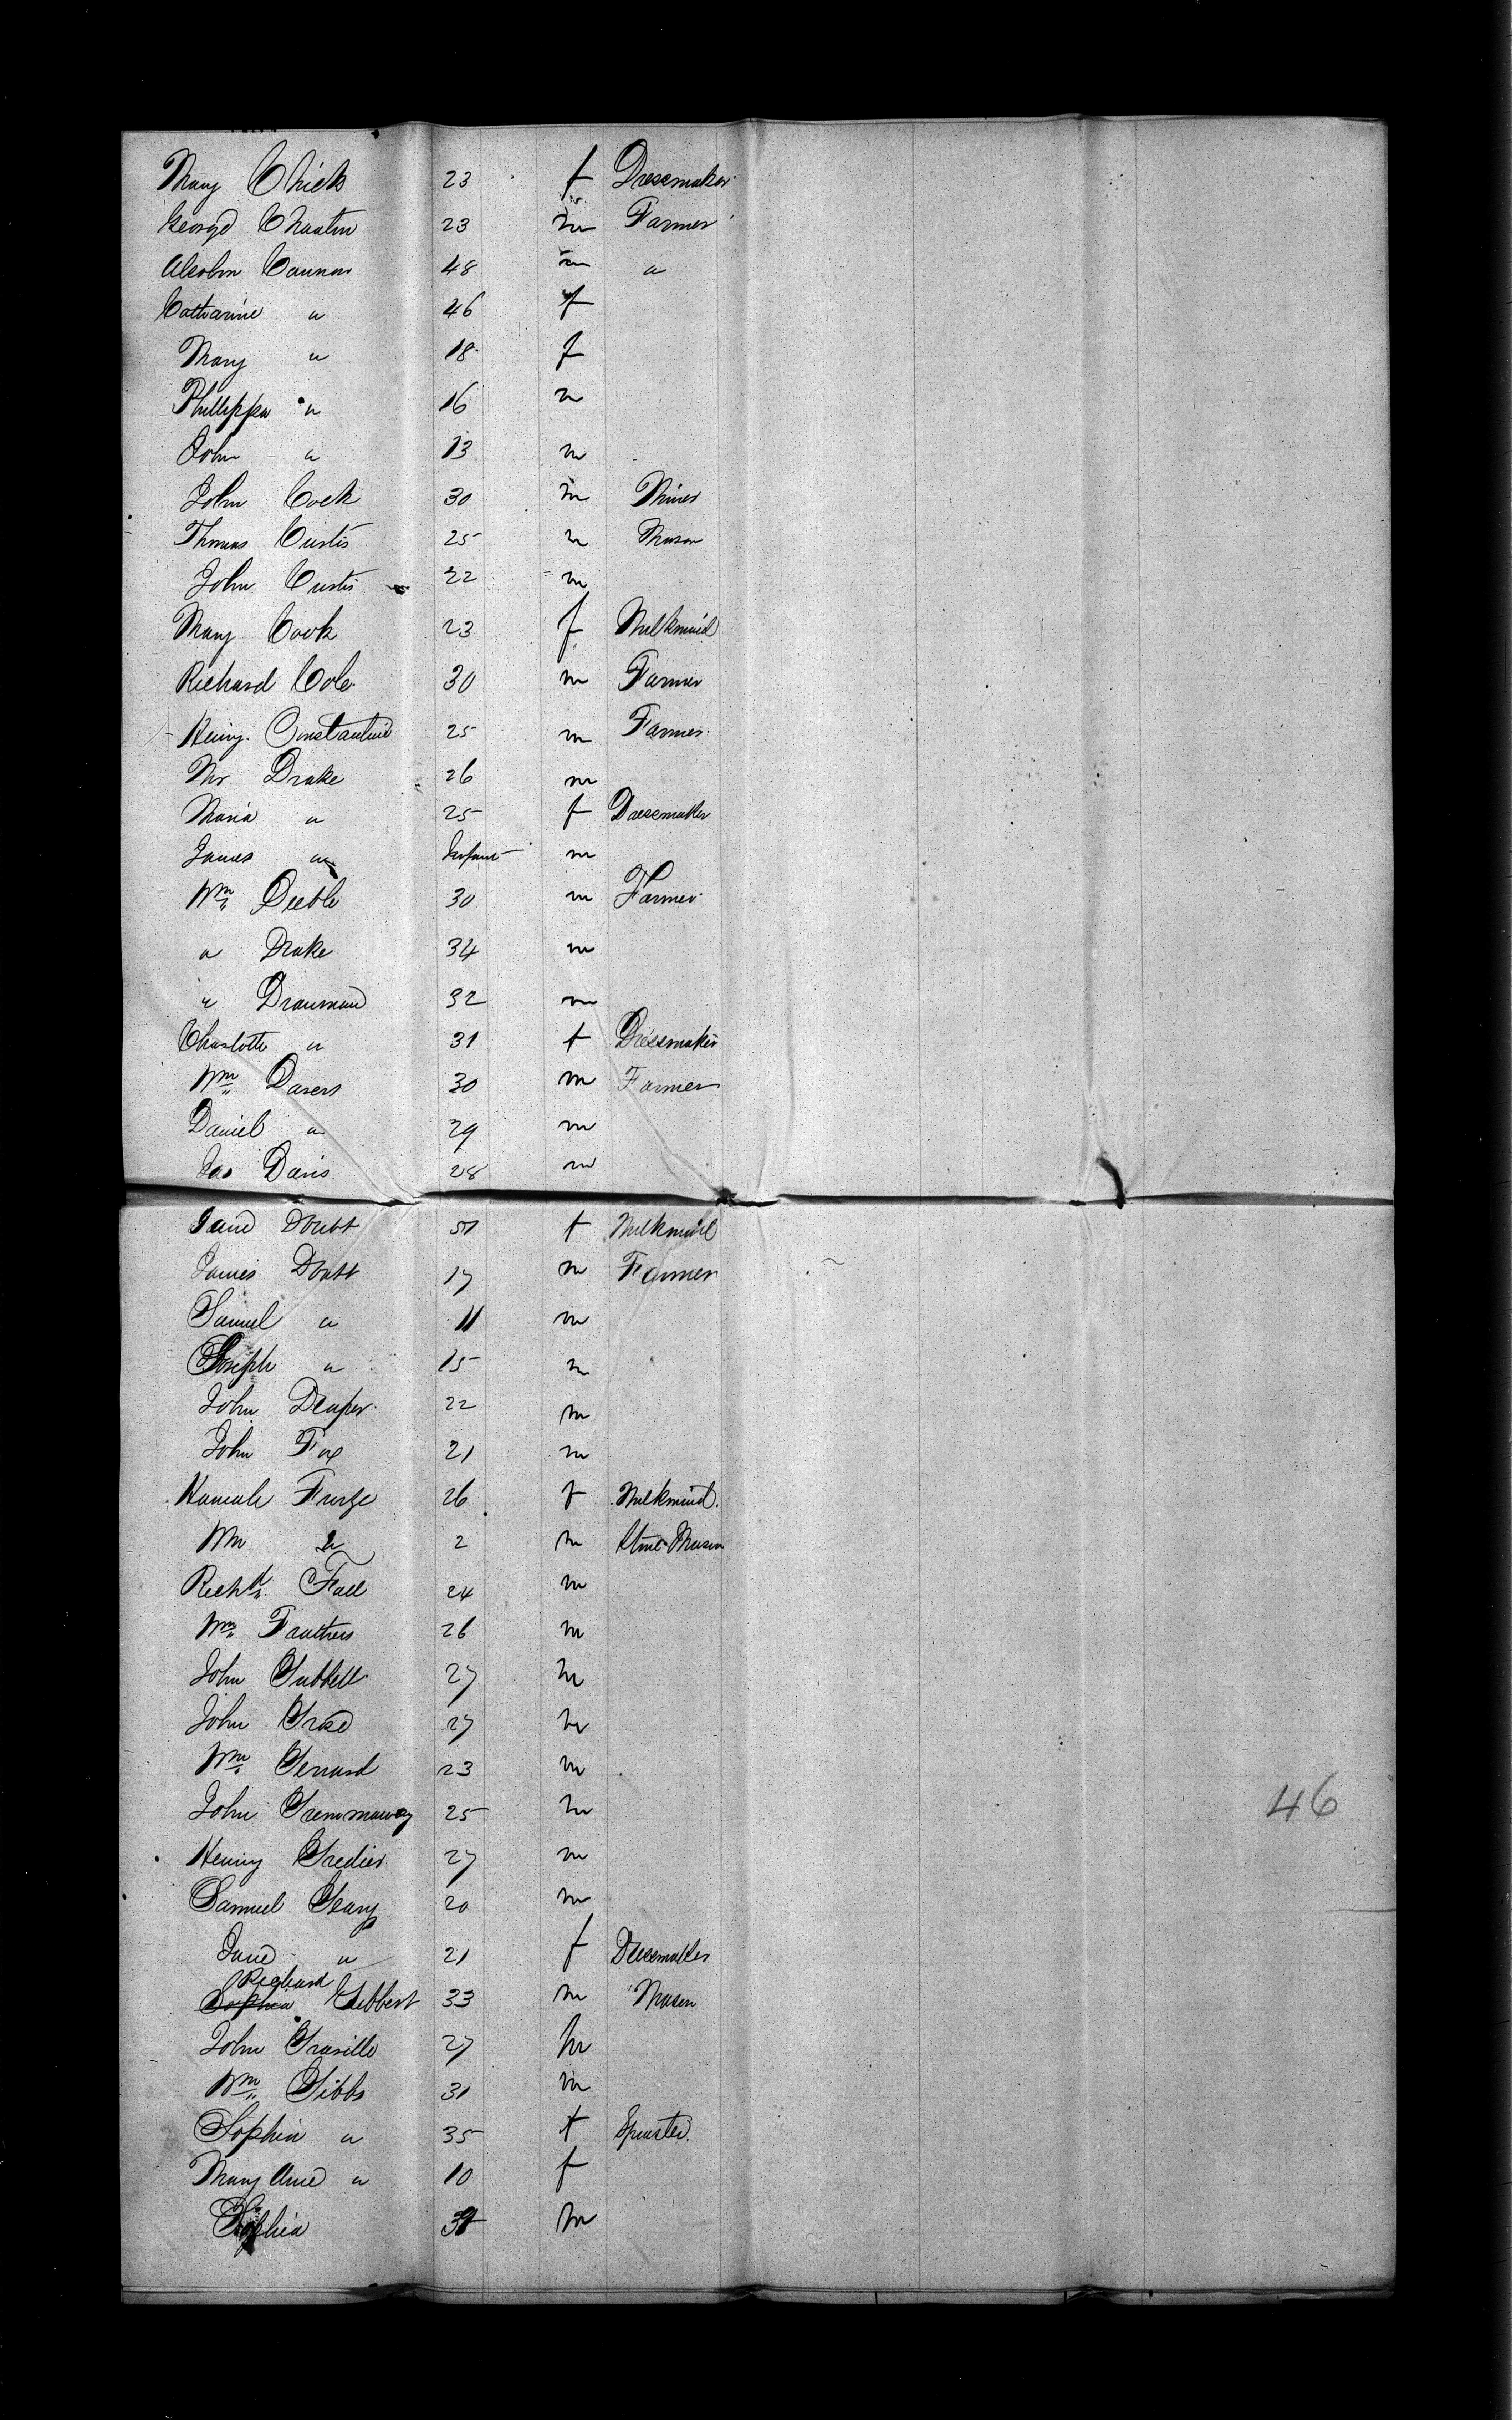 Mary Chick 23 f Dressmaker
George Chanton 23 m Farmer
Alsolm Cannon 48 m "
Catharine " 46 f
Mary " 18 f
Phillippa " 16 m
John " 13 m
John Cock 30 m Miner
Thomas Curtis 25 m Mason
John Curtis 22 m
Mary Cook 23 f Milkmaid
Richard Cole 30 m Farmer
Henry Constantine 25 m Farmer
Mr Drake 26 m
Maria " 25 f Dressmaker
James " Infant m
Wm Deeble 30 m Farmer
" Drake 34 m
" 32 m
Charlotte " 31 f Dressmaker
Wm Davers 30 m Farmer
Daniel " 29 m
Jas Davis 28 m
Jane Doubt 51 f Milkmaid
James Doubt 17 m Farmer
Samuel " 11 m
Joseph " 15 m
John Draper 22 m
John Fox 21 m
Hannah Furze 26 f Milkmaid
Wm " 2 m Stone Mason
Richd Fall 24 m
Wm Fruthers 26 m
John Gubbell 27 m
John 27 m
Wm Gerrard 23 m
John Gremmaway 25 m
Henry 27 m
Samuel Geary 20 m
Jane " 21 f Dressmaker
Richard
Sophia Gibbert 33 m Mason
John Graville 27 m
Wm Gibbs 31 m
Sophia " 35 f Spinster
Mary Ane " 10 f
Sophia m
46